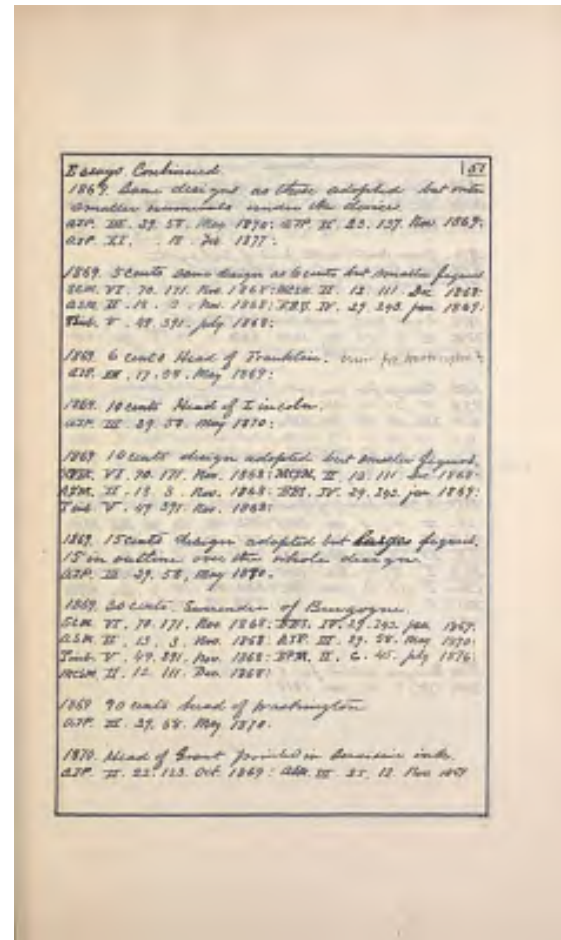 Essays Continued 51
1869. Same designs as those adopted but with
smaller numerals under the device.
AJP. III. 29. 58. May 1870: AJP II. 23. 137. Nov 1869:
AJP. XI. . 18. Feb 1877:
1869. 5 cents same design as 6 cents but smaller figures
SCM. VI. 70. 171. Nov. 1868: MCM. II. 12. 111. Dec 1868:
ASM. II. 13. 3. Nov. 1868: IV. 29. 242. Jan 1869:
Timb. V. 49. 391. July 1868:
1869. 6 cents Head of Franklin.
AJP. III. 17. 58. May 1869:
1869. 10 cents Head of Lincoln.
AJP. III. 29. 58. May 1870:
1869 10 cents design adopted but smaller figures.
SCM. VI. 70. 171. Nov. 1868: MCM. II. 12. 111. Dec 1868:
ASM. II. 13. 3. Nov. 1868: IV. 29. 242. Jan 1869:
Timb. V. 49 391. Nov. 1868:
1869. 15 cents design adopted but larges figures.
15 in outline over the whole design.
AJP. III. 29. 58, May 1870.
1869. 30 cents. Surrender of Burgogne.
SCM. VI. 70. 171. Nov 1868: IV. 29. 242. Jan 1869:
ASM. II. 13. 3. Nov. 1868: AJP. III. 29. 58. May 1870:
Timb. V. 49. 391. Nov. 1868: II. 6. 45. July 1876:
MCM. II. 12. 111. Dec. 1868:
1869 90 cents head of Washington
AJP. III. 29. 58. May 1870.
1870. Head of Grant printed in ink.
AJP. II. 22. 123. Oct. 1869: ASM. III. 25. 12. Nov 1869